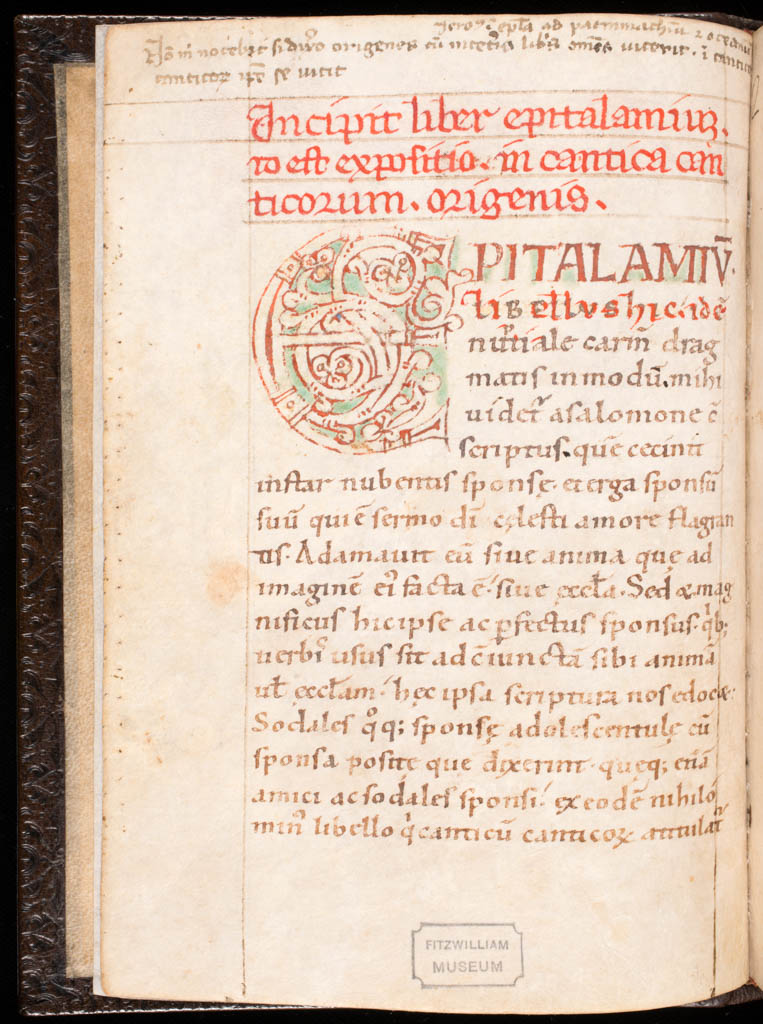 Jero9 ī ep̄la ad pammachiū ⁊ oceanū
Nō m̄ nocebit si dix̄o origenes cū in cet̄is lib̄s om̄es vicerit · ī cantico
canticoꝝ ip̄e se vicit
Incipit liber epitalamiuꝫ.
ro est expositio. in cantica can
ticorum. origenis.
EPITALAMIV̄.
libellus hic. idē
nuptiale carm̄ drag
matis in modū. mihi
uidet̄ a salomone c̄
scriptus. quē cecinit
instar nubentis sponsę. et erga sponsū
suū qui ē sermo dī cęlesti amore flagran
tis. Adamauit eū siue anima que ad
imaginē ei9 facta ē. siue eccl̄a. Sed & mag
nificus hic ipse ac ꝑfectus sponsus. qͥb;
uerbis usus sit ad c̄iunctā sibi animā
ul̄ eccl̄am. hęc ipsa scriptura nos edocet.
Sodales qͦq; sponsę adolescentulę cū
sponsa positę que dixerint. queq; etiā
amici ac sodales sponsi. ex eodē nihilo
min9 libello qͥ canticū canticoꝝ attitulat̄
FITZWILLIAM
MUSEUM